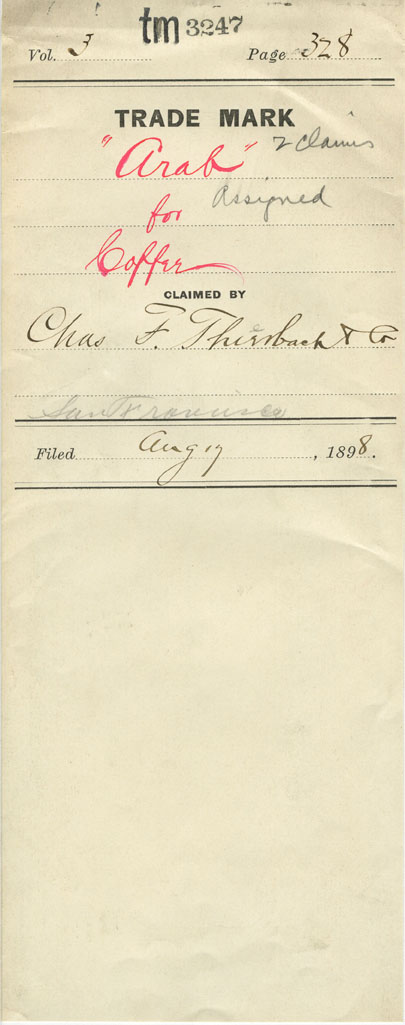 tm 3247
Vol. 3 Page 328
TRADE MARK
"Arab" 2 claims
Assigned
for
Coffee
CLAIMED BY
Chas F. Thierbach & Co
San Francisco
Filed Aug 17, 1898.